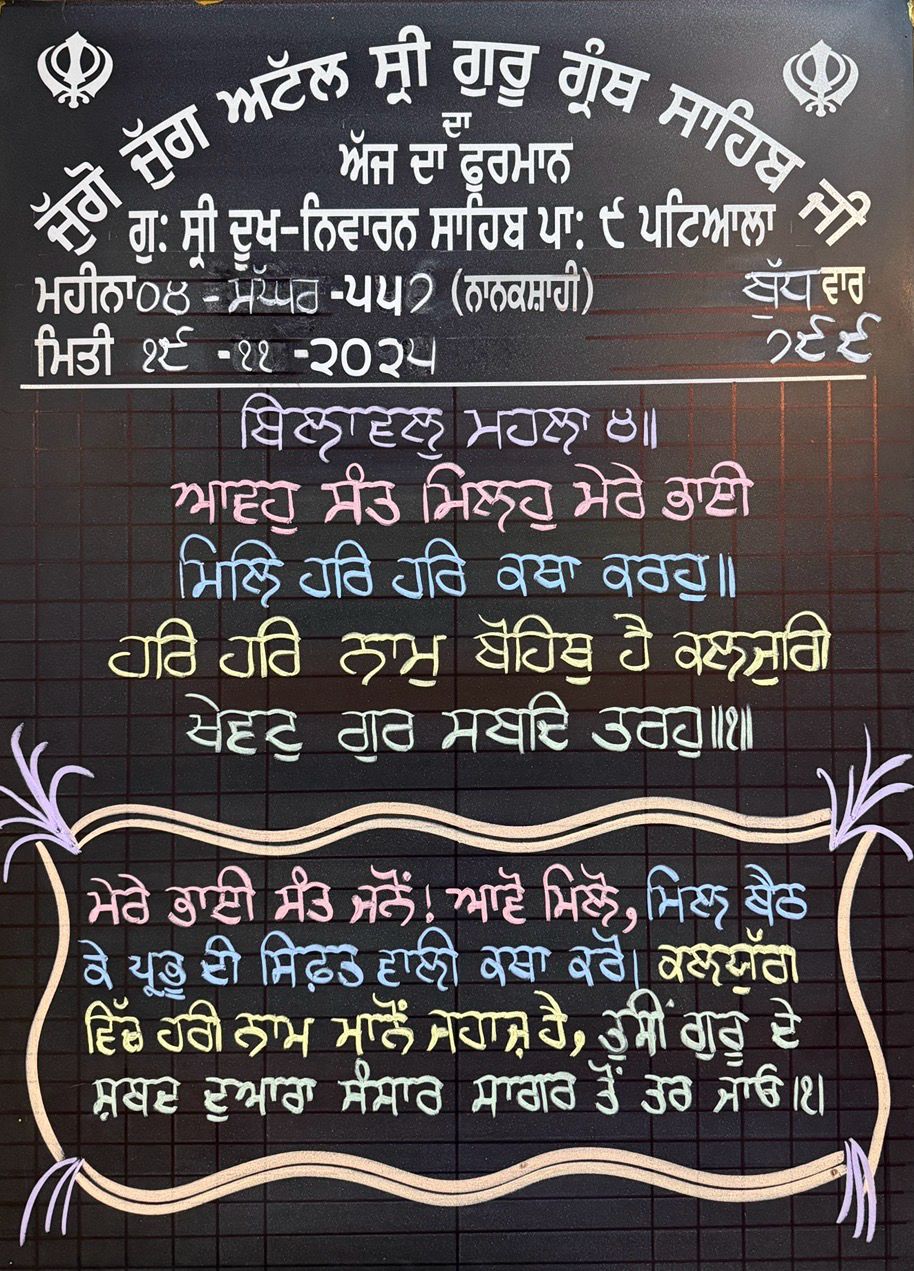 ਜੁੱਗੋ ਜੁੱਗ ਅਟੱਲ ਸ੍ਰੀ ਗੁਰੂ ਗ੍ਰੰਥ ਸਾਹਿਬ ਜੀ
ਦਾ
ਅੱਜ ਦਾ ਫੁਰਮਾਨ
ਗੁ: ਸ੍ਰੀ ਦੂਖ-ਨਿਵਾਰਨ ਸਾਹਿਬ ਪਾ: ੯ ਪਟਿਆਲਾ
ਮਹੀਨਾ ੦੪ - ਮੱਘਰ -੫੫੭ (ਨਾਨਕਸ਼ਾਹੀ) ਬੁੱਧ ਵਾਰ
ਮਿਤੀ ੧੯ -੧੧ -੨੦੨੫ ੭੯੯
ਬਿਲਾਵਲੁ ਮਹਲਾ ੪॥
ਆਵਹੁ ਸੰਤ ਮਿਲਹੁ ਮੇਰੇ ਭਾਈ
ਮਿਲਿ ਹਰਿ ਹਰਿ ਕਥਾ ਕਰਹੁ॥
ਹਰਿ ਹਰਿ ਨਾਮੁ ਬੋਹਿਥੁ ਹੈ ਕਲਜੁਗਿ
ਖੇਵਟੁ ਗੁਰ ਸਬਦਿ ਤਰਹੁ॥੧॥
ਮੇਰੇ ਭਾਈ ਸੰਤ ਜਨੋਂ! ਆਵੋ ਮਿਲੋ, ਮਿਲ ਬੈਠ
ਕੇ ਪ੍ਰਭੂ ਦੀ ਸਿਫ਼ਤ ਵਾਲੀ ਕਥਾ ਕਰੋ। ਕਲਯੁੱਗ
ਵਿੱਚ ਹਰੀ ਨਾਮ ਮਾਨੋਂ ਜਹਾਜ਼ ਹੈ, ਤੁਸੀਂ ਗੁਰੂ ਦੇ
ਸ਼ਬਦ ਦੁਆਰਾ ਸੰਸਾਰ ਸਾਗਰ ਤੋਂ ਤਰ ਜਾਓ।੧।